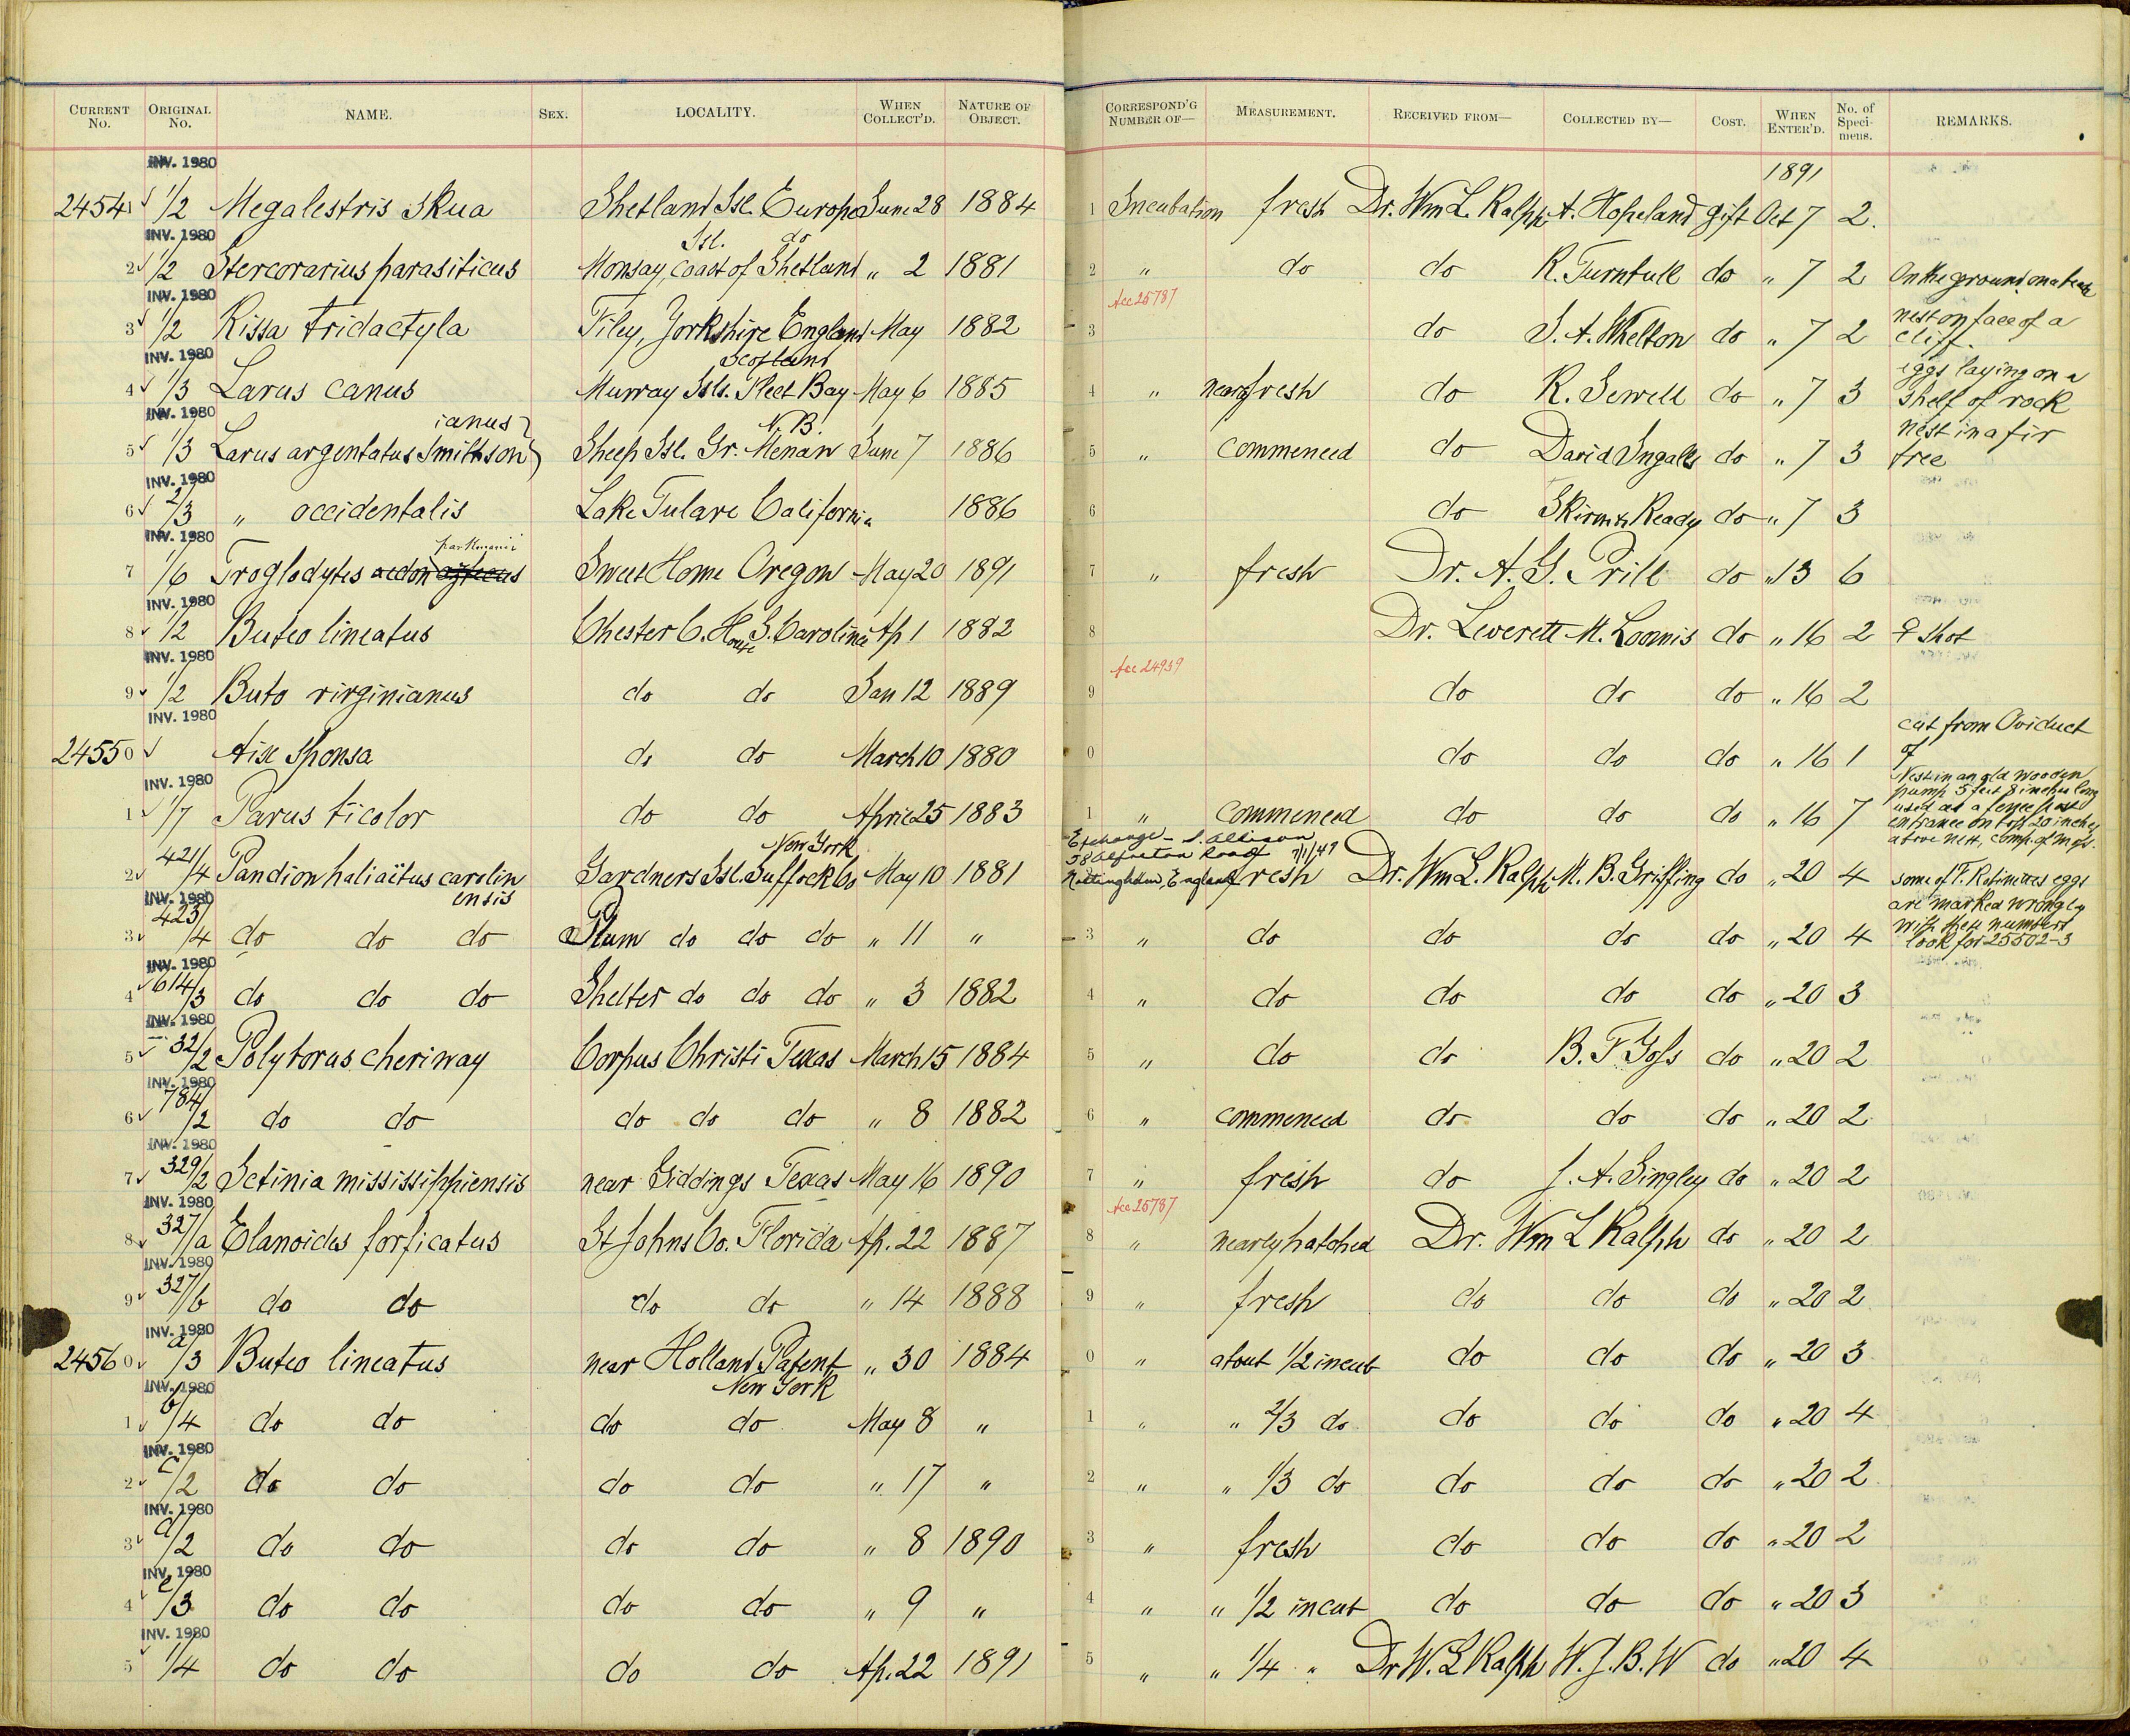 CURRENT No. ORIGINAL No. NAME. SEX. LOCALITY. WHEN COLLECT'D. NATURE OF OBJECT. CORRESPOND'G NUMBER OF— MEASUREMENT. RECEIVED FROM— COLLECTED BY— COST. WHEN ENTER'D. No. of Specimens. REMARKS.
INV. 1980 1891
24541 1/2 Megalestris Skua Shetland Isl. Europe June 28 1884 1 Incubation fresh Dr. Wm L. Ralph A. Hopeland gift Oct 7 2.
INV. 1980 Isl. do
2 1/2 Stercorarius parasiticus Monsay, coast of Shetland " 2 1881 2 " do do R. Turnbull do " 7 2 On the ground on a beach
INV. 1980 Acc 25787
3 1/2 Rissa tridactyla Filey, Yorkshire England May 1882 3 do S. A. Whelton do " 7 2 nest on face of a cliff.
INV. 1980 Scotland
4 1/3 Larus canus Murray Isls. Fleet Bay May 6 1885 4 " nearly fresh do R. Sewell do " 7 3 eggs laying on a shelf of rock
INV. 1980 ianus N. B.
5 1/3 Larus argentatus Smithson Sheep Isl. Gr. Menan June 7 1886 5 " commenced do David Ingalls do " 7 3 nest in a fir tree
INV. 1980
6 2/3 " occidentalis Lake Tulare California 1886 6 do Skirm & Ready do " 7 3
INV. 1980 parkmanii
7 1/6 Troglodytes aedon aztecus Sweet Home Oregon May 20 1891 7 " fresh Dr. A. G. Prill do " 13 6
INV. 1980
8 1/2 Buteo lineatus Chester C. House S. Carolina Ap 1 1882 8 Dr. Leverett M. Loomis do " 16 2 ♀ shot
INV. 1980 Acc 24939
9 1/2 Buto virginianus do do Jan 12 1889 9 do do do " 16 2
INV. 1980
24550 Aix sponsa do do March 10 1880 0 do do do " 16 1 cut from Oviduct of
INV. 1980
1 1/7 Parus bicolor do do April 25 1883 1 " commenced do do do " 16 7 Nest in an old wooden pump 5 feet 8 inches long used as a fence post entrance on top 20 inches above nest, comp. of mgs.
New York Exchange - S. Allison 58 Alfreton Road 7/1/47 Nottingham, England
2 421/4 Pandion haliaëtus carolinensis Gardners Isl. Suffock Co May 10 1881 fresh Dr. Wm L. Ralph M. B. Griffing do " 20 4 some of F. Robinettes eggs
INV. 1980 are marked wrongly
3 423/4 do do do Plum do do do " 11 " 3 " do do do do " 20 4 with these numbers look for 25502-3
INV. 1980
4 614/3 do do do Shelter do do do " 3 1882 4 " do do do do " 20 3
INV. 1980
5 32/2 Polyborus cheriway Corpus Christi Texas March 15 1884 5 " do do B. F Goss do " 20 2
INV. 1980
6 784/2 do do do do do " 8 1882 6 " commenced do do do " 20 2
INV. 1980
7 329/2 Ictinia mississippiensis near Giddings Texas May 16 1890 7 " fresh do J. A. Singley do " 20 2
INV. 1980 Acc 25787
8 327/a Elanoides forficatus St Johns Co. Florida Ap. 22 1887 8 " nearly hatched Dr. Wm L Ralph do " 20 2
INV. 1980
9 327/b do do do do " 14 1888 9 " fresh do do do " 20 2
INV. 1980
24560 a/3 Buteo lineatus near Holland Patent " 30 1884 0 " about 1/2 incub do do do " 20 3
INV. 1980 New York
1 b/4 do do do do May 8 " 1 " " 2/3 do do do do " 20 4
INV. 1980
2 c/2 do do do do " 17 " 2 " " 1/3 do do do do " 20 2
INV. 1980
3 d/2 do do do do " 8 1890 3 " fresh do do do " 20 2
INV. 1980
4 e/3 do do do do " 9 " 4 " " 1/2 incub do do do " 20 3
INV. 1980
5 1/4 do do do do Ap. 22 1891 5 " " 1/4 " Dr W. L Ralph W. J. B. W do " 20 4